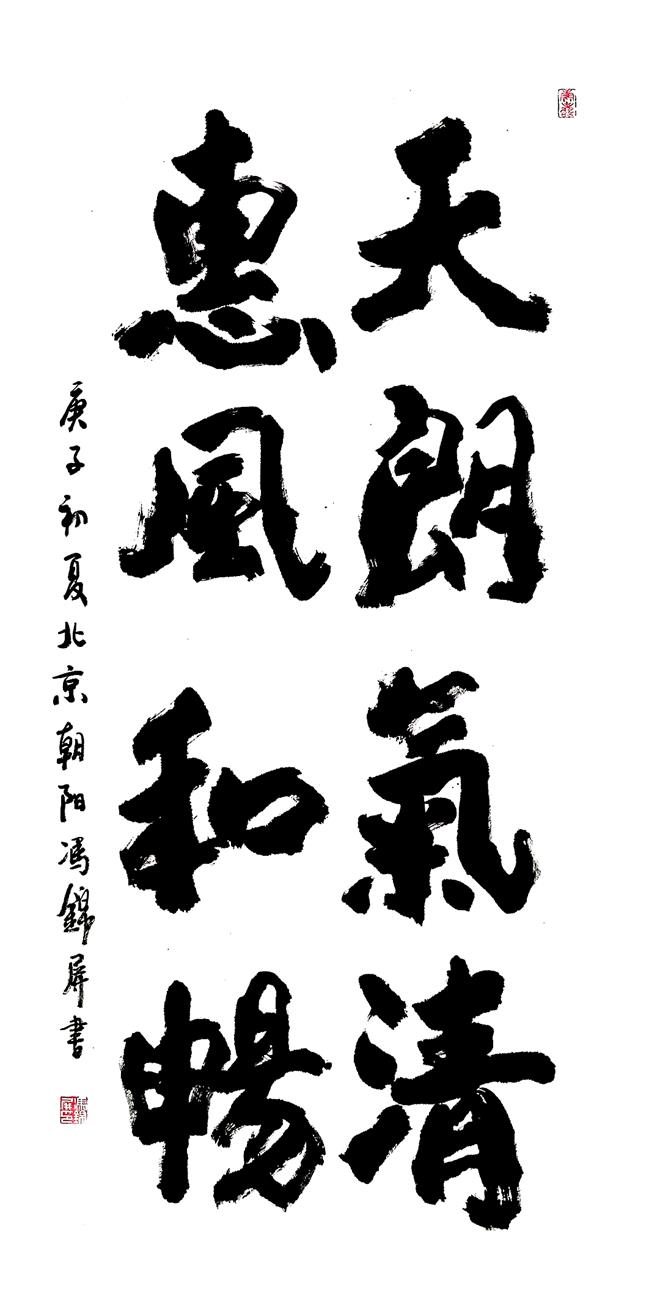 天朗氣清
惠風和暢
庚子初夏北京朝阳馮錦屏書